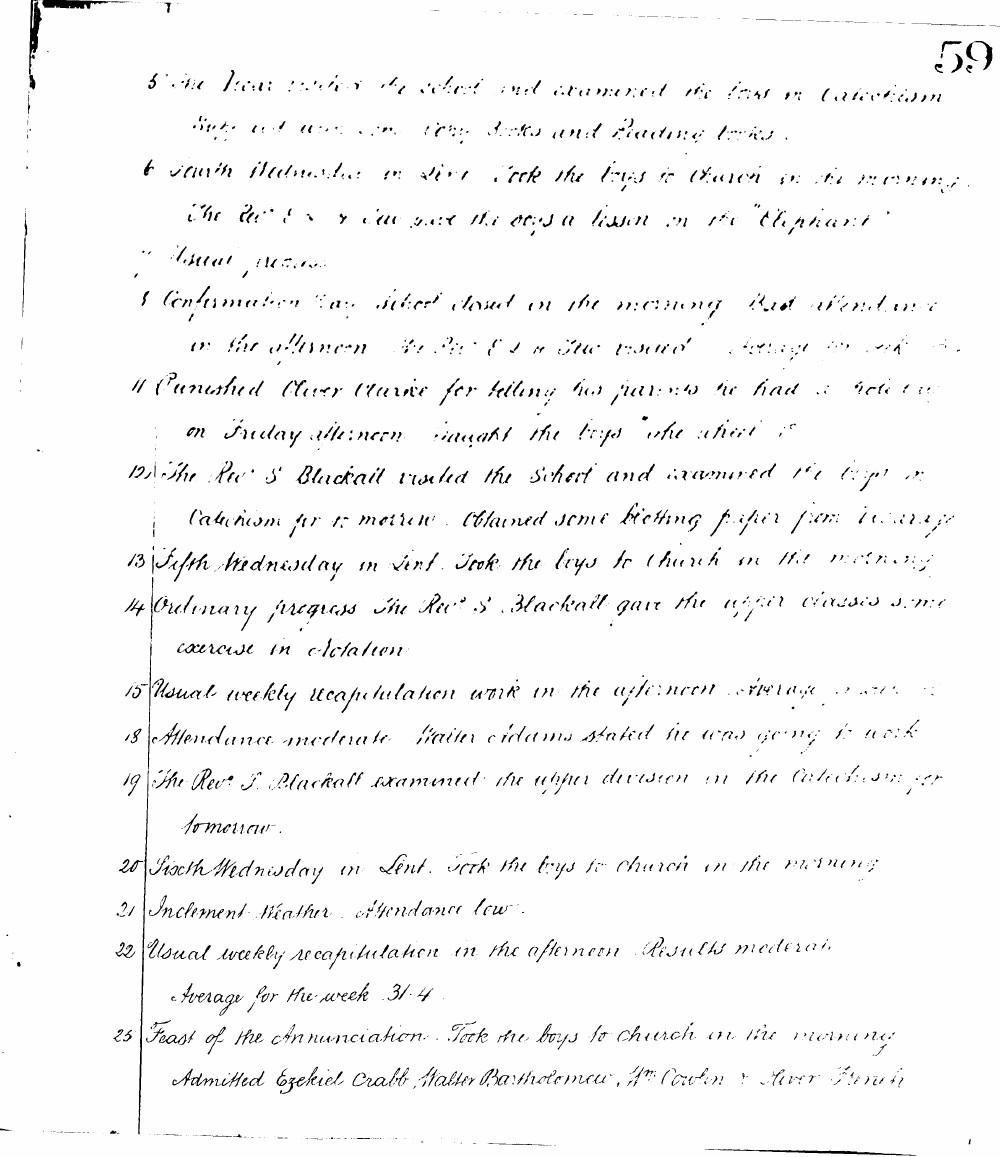 59
5 The Vicar visited the school and examined the boys in Catechism
some Copy Books and Reading books.
6 Fourth Wednesday in Lent Took the boys to Church in the morning.
The Revd gave the boys a lesson on the "Elephant"
7 Usual progress
8 Confirmation Day School closed in the morning Bad attendance
in the afternoon The Revd visited Average for week
11 Punished Oliver Clarke for telling his parents he had a holiday
on Friday afternoon Taught the boys "
12 The Revd S Blackall visited the School and examined the boys in
Catechism for to morrow. Obtained some blotting paper from Vicarage
13 Fifth Wednesday in Lent. Took the boys to Church in the morning
14 Ordinary progress The Revd S Blackall gave the upper classes some
exercise in Notation
15 Usual weekly recapitulation work in the afternoon Average
18 Attendance moderate Walter Adams stated he was going to work
19 The Revd S. Blackall examined the upper division in the Catechism for
tomorrow.
20 Sixth Wednesday in Lent. Took the boys to Church in the morning
21 Inclement Weather. Attendance low.
22 Usual weekly recapitulation in the afternoon Results moderate
Average for the week 31.4
25 Feast of the Annunciation. Took the boys to Church in the morning
Admitted Ezekiel Crabb, Walter Bartholomew, Wm Cowlin & Oliver French